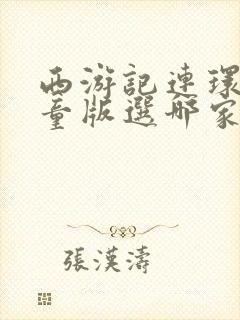 西游記連環
童版選哪家
張漢濤